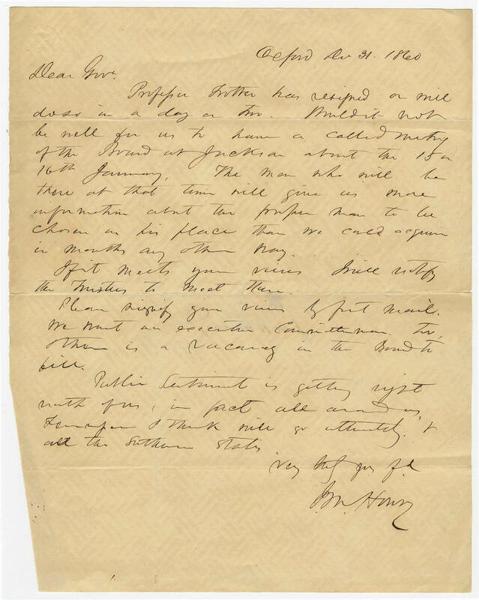 Oxford Dec 31. 1860
Dear Gov.
Professor has resigned or will
do so in a day or two. Would it not
be well for us to have a called meeting
of the Board at Jackson about the 15 or
16th January. The men who will be
there at that time will give us more
information about the proper man to be
chosen in his place than we could acquire
in months any other way.
If it meets your views I will notify
the trustees to meet then.
Please signify your views by first mail.
We want an executive Committeeman too,
there is a vacancy in the Board to
fill.
Public Sentiment is getting right
north of us, in fact all around us
I think will go ultimately, &
all the Southern States
Very your fd
J.M. Howry